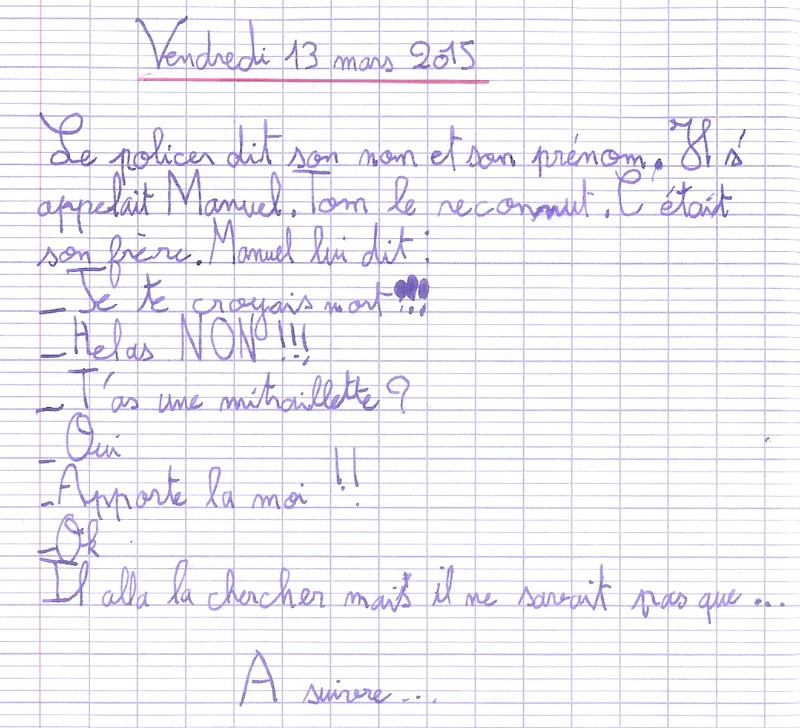 Vendredi 13 mars 2015
Le policer dit son nom et son prénom. Il s'
appelait Manuel. Tom le reconnut. C'était
son frère. Manuel lui dit :
_ Je te croyais mort !!!
_ Helas NON !!!
_ T'as une mitraillette ?
_ Oui
_ Apporte la moi !!
_ Ok
Il alla la chercher mais il ne savait pas que ...
A suivre ...